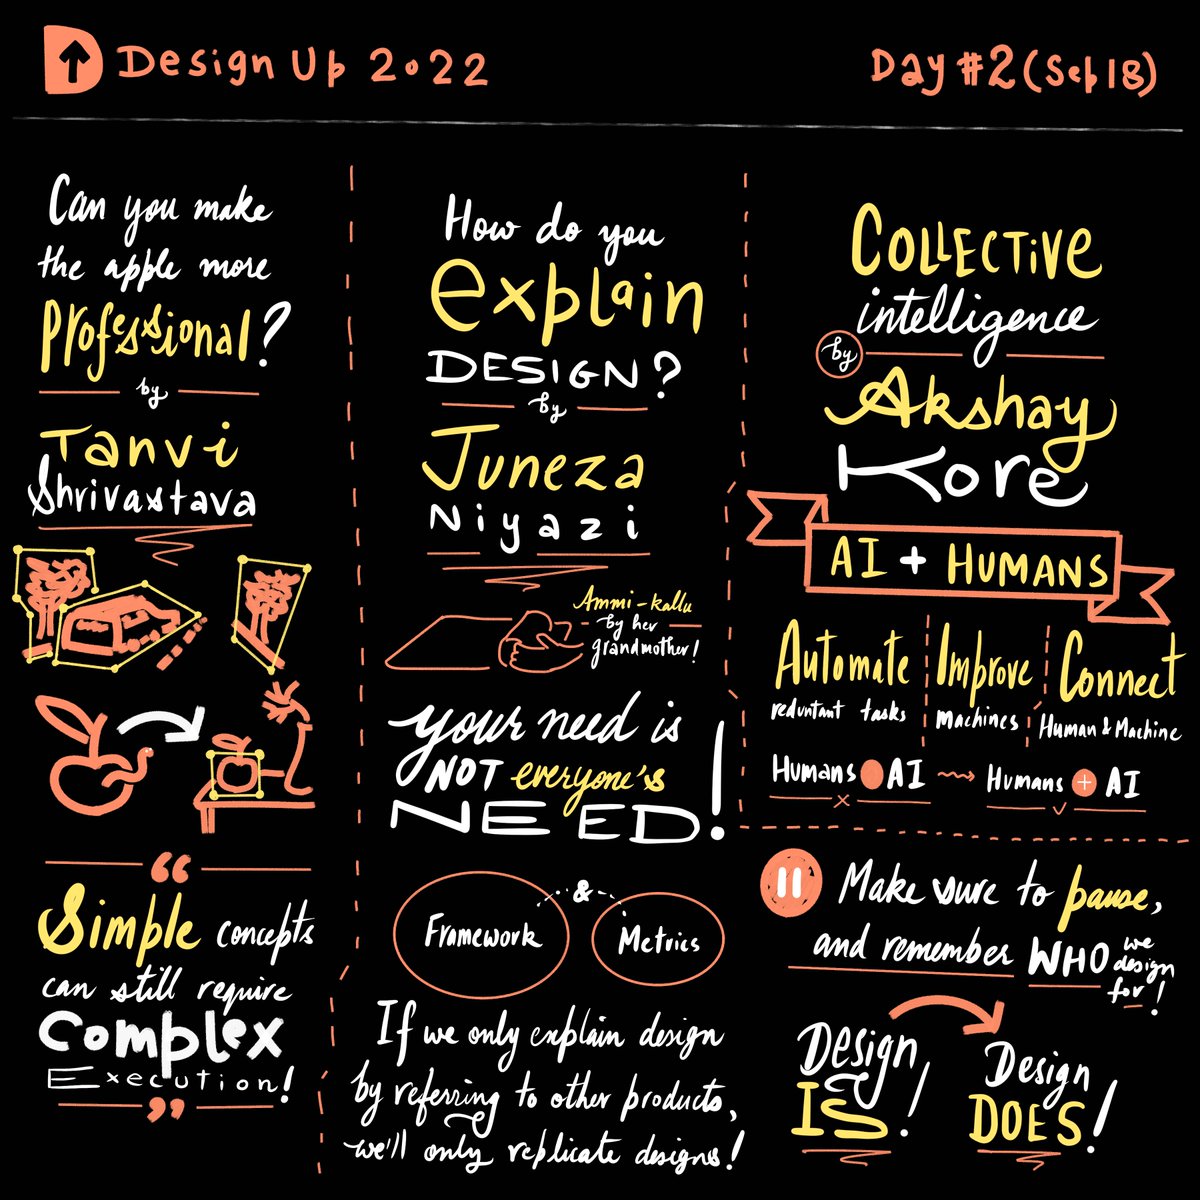 Design Up 2022
Day #2 (Sep 18)
Can you make
the apple more
Professional?
by
Tanvi
Shrivastava
“
Simple concepts
can still require
Complex
Execution!
”
How do you
explain
DESIGN?
by
Juneza
Niyazi
Ammi-kallu
by her
grandmother!
your need is
NOT everyone's
NEED!
&
Framework
Metrics
If we only explain design
by referring to other products,
we'll only replicate designs!
COLLECTIVE
intelligence
by
Akshay
Kore
AI + HUMANS
Automate
reduntant tasks
Improve
machines
Connect
Human & Machine
Humans AI
Humans + AI
Make sure to pause,
and remember WHO we
design
for!
DESIGN
IS!
Design
DOES!